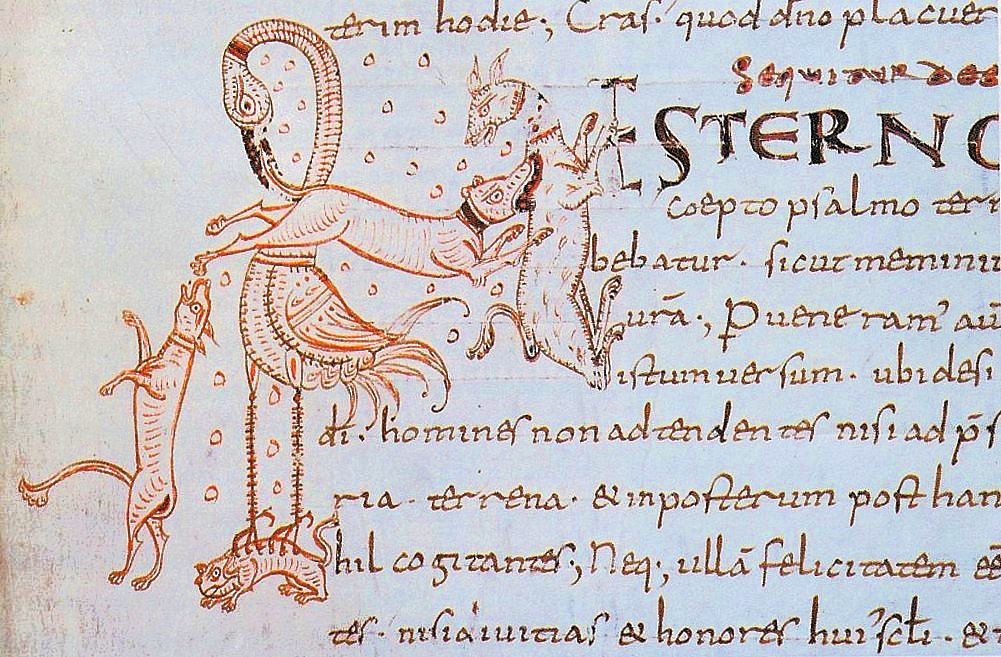 terim hodie; Cras· quod dn̄o placuer
Sequitur des
ESTERNO
coepto psalmo ter
bebatur· sicut meminı
urā·; Puene ram' au
istum uersum· ubi desi
di· homines non adtendentes nisi ad p̄s
ria· terrena· & inposterum post han
hil cogitantes·; Neq·; ullā felicitatem eē
tes· nisi diuitias & honores